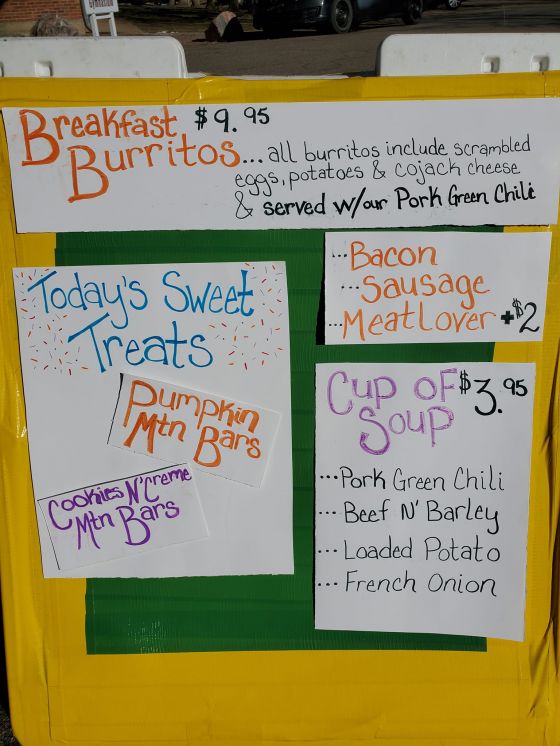 Breakfast $9.95
Burritos... all burritos include scrambled
eggs, potatoes & cojack cheese
& served w/our Pork Green Chili
...Bacon
...Sausage
...Meatlover +$2
Today's Sweet
Treats
Pumpkin
Mtn Bars
Cookies N' Creme
Mtn Bars
Cup of $3.95
Soup
...Pork Green Chili
...Beef N' Barley
...Loaded Potato
...French Onion